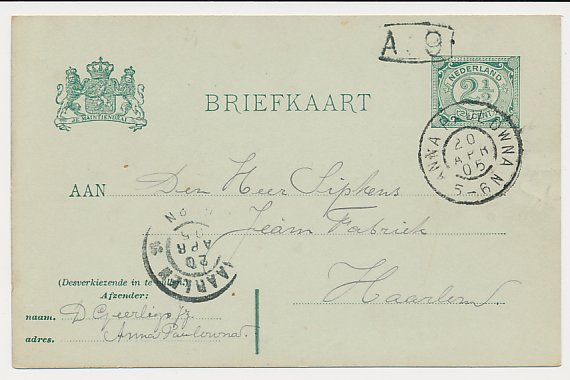 A 9
NEDERLAND
2½
CENT
JE MAINTIENDRAI
BRIEFKAART
ANNA PAULOWNA
20
APR
05
5-6 N
AAN Den Heer Sijpkens
Jeam Fabriek
Haarlem.
HAARLEM
20
APR
05
N
(Desverkiezende in te vullen.)
Afzender:
naam. D Geerligs Jz
adres. Anna Paulowna